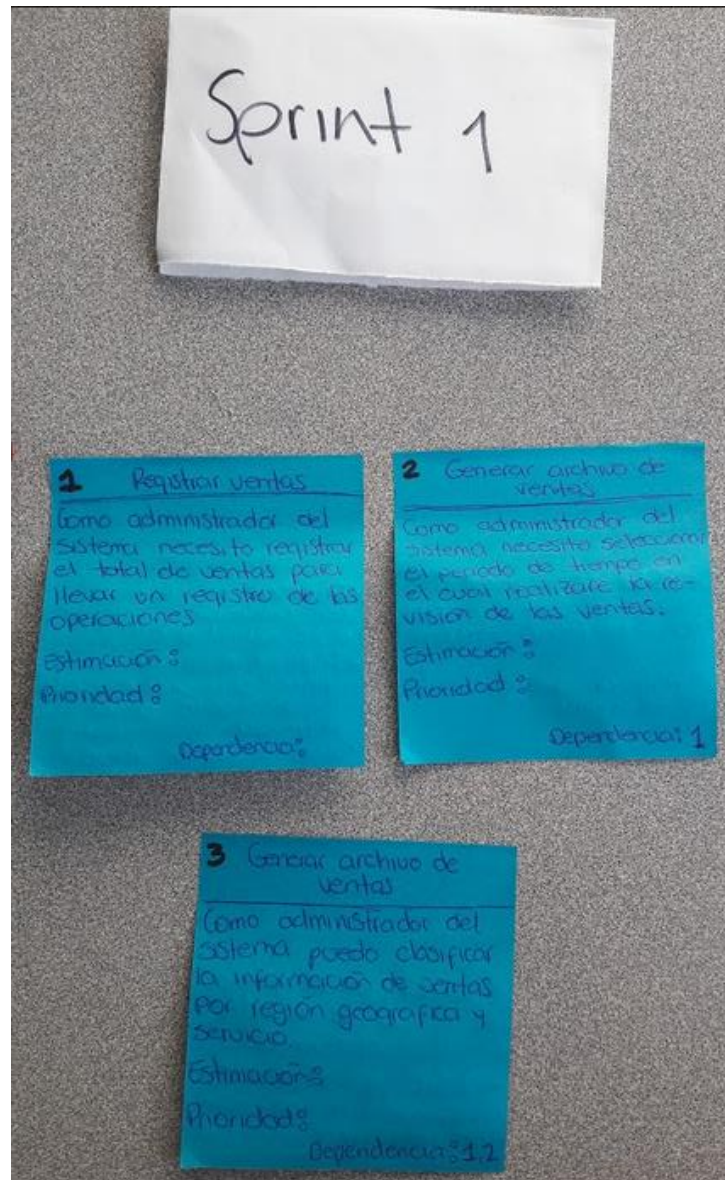 Sprint 1
1 Registrar ventas
Como administrador del
sistema necesito registrar
el total de ventas para
llevar un registro de las
operaciones
Estimación:
Prioridad:
Dependencia:
2 Generar archivo de
ventas
Como administrador del
sistema necesito seleccionar
el periodo de tiempo en
el cual realizare la re-
visión de las ventas.
Estimación:
Prioridad:
Dependencia: 1
3 Generar archivo de
ventas
Como administrador del
sistema puedo clasificar
la información de ventas
por región geográfica y
servicio
Estimación:
Prioridad:
Dependencia: 1,2